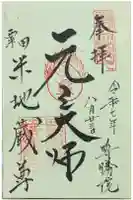 奉拝
令和七年
八月廿三日
尊勝院
元三大師
粟田
米地蔵尊